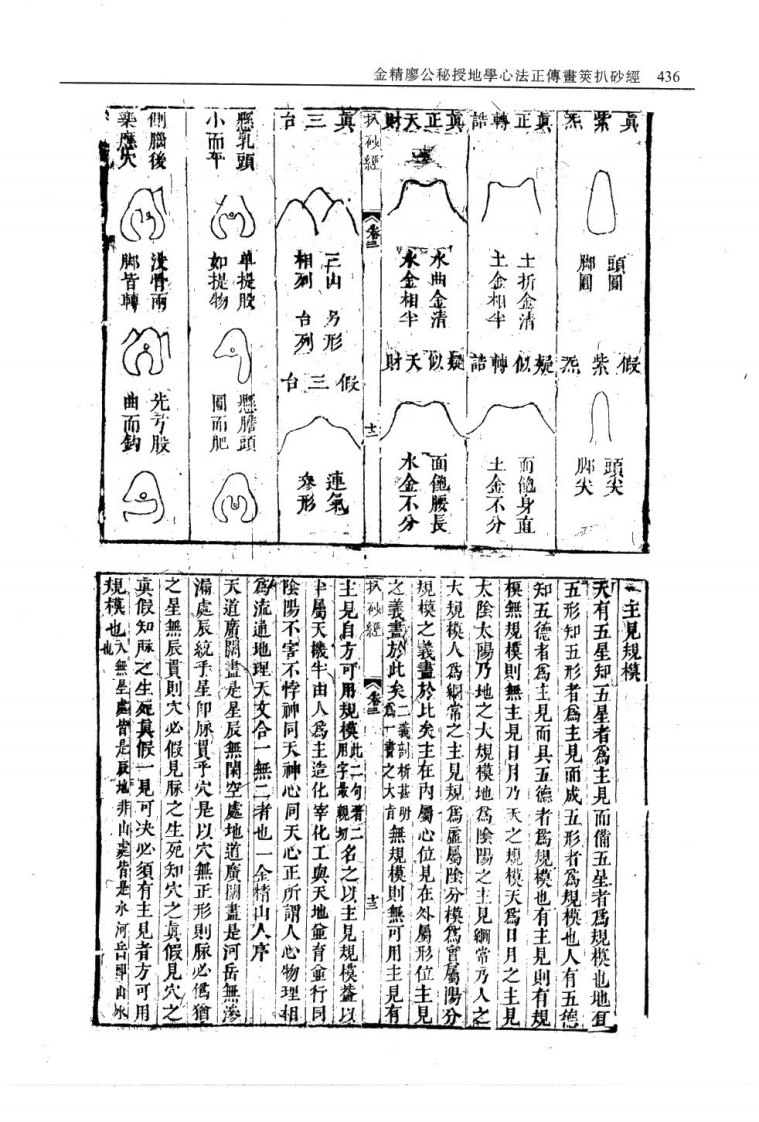 金精廖公秘授地學心法正傳畫筴扒砂經 436
真紫炁
頭圓
脚圓
假紫炁
頭尖
脚尖
真正轉誥
土折金清
土金相半
疑似轉誥
而飽身直
土金不分
真正天財
水曲金清
水金相半
疑似天財
面飽腰長
水金不分
扒砂經
卷三
十二
真三台
三山另形
相列台列
假三台
連氣
參形
懸乳頭
小而平
單提股
如提物
懸膽頭
圓而肥
側腦後
樂應穴
沒骨兩
脚皆轉
先弓股
曲而鈎
主見規模
天有五星知五星者爲主見而備五星者爲規模也地有
五形知五形者爲主見而成五形者爲規模也人有五德
知五德者爲主見而具五德者爲規模也有主見則有規
模無規模則無主見日月乃天之規模天爲日月之主見
太陰太陽乃地之大規模地爲陰陽之主見綱常乃人之
大規模人爲綱常之主見規爲虛屬陰分模爲實屬陽分
規模之義畫於此矣主在內屬心位見在外屬形位主見
之義畫於此矣二義剖析甚明爲一書之大旨無規模則無可用主見有
扒砂經
卷三
十三
主見自方可用規模此二句著二用字最親切名之以主見規模蓋以
半屬天機半由人爲主造化宰化工與天地並育並行同
陰陽不害不悖神同天神心同天心正所謂人心物理相
爲流通地理天文合一無二者也一金精山人序
天道廣闊盡是星辰無閑空處地道廣闊盡是河岳無滲
漏處辰統乎星即脉貫乎穴是以穴無正形則脉必僞猶
之星無辰貫則穴必假見脉之生死知穴之真假見穴之
真假知脉之生死真假一見可決必須有主見者方可用
規模也天無星處皆是辰地非山處皆是水河岳即山水也